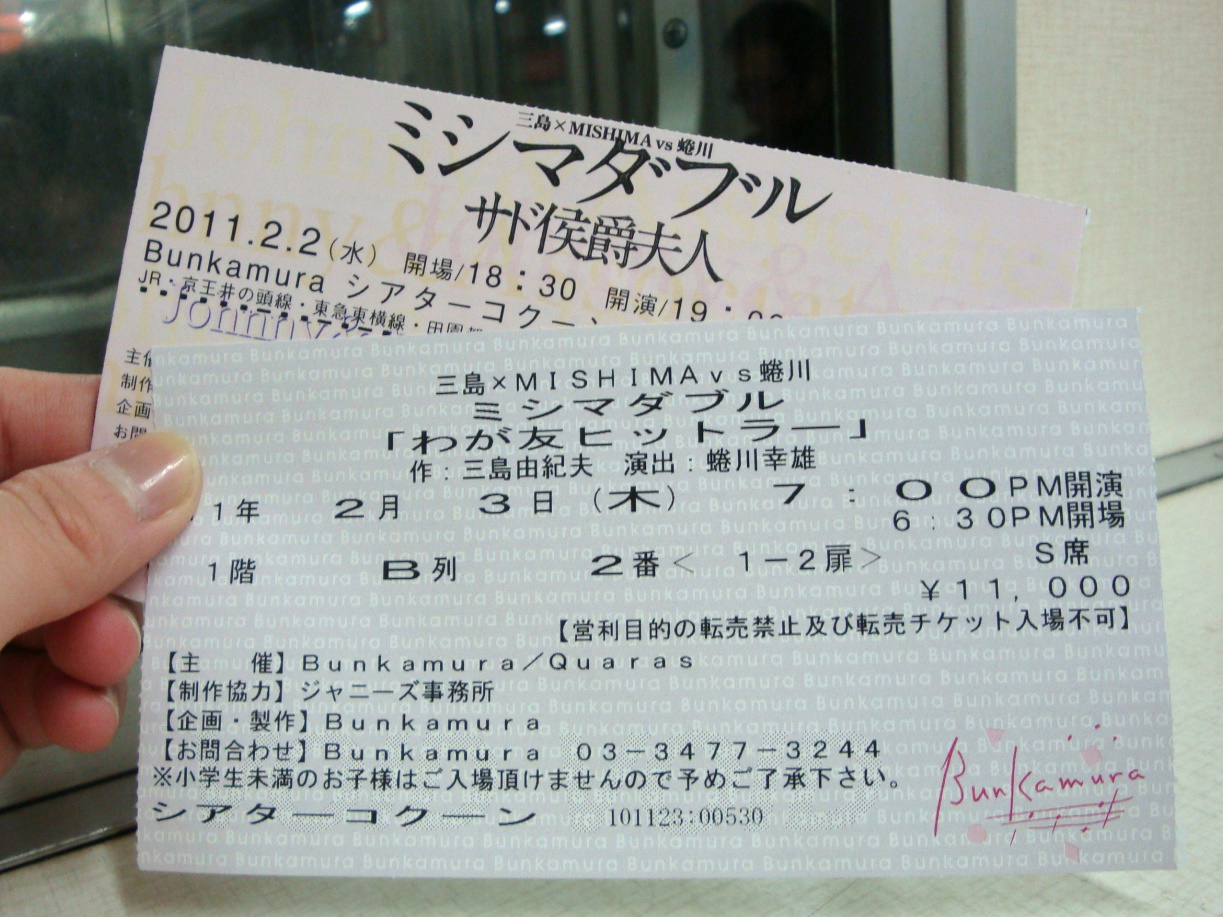 三島×MISHIMA vs 蜷川
ミシマダブル
サド侯爵夫人
2011.2.2(水) 開場/18:30 開演/19:
Bunkamura シアターコクーン
JR・京王井の頭線・東急東横線・田園都
Johnny
主催
制作
企画
お問
三島×MISHIMAvs蜷川
ミシマダブル
「わが友ヒットラー」
作:三島由紀夫 演出:蜷川幸雄
1年 2月 3日(木) 7:00PM開演
6:30PM開場
1階 B列 2番< 1-2扉> S席
¥11,000
【営利目的の転売禁止及び転売チケット入場不可】
【主 催】Bunkamura/Quaras
【制作協力】ジャニーズ事務所
【企画・製作】Bunkamura
【お問合わせ】Bunkamura 03-3477-3244
※小学生未満のお子様はご入場頂けませんので予めご了承下さい。
シアターコクーン 101123:00530
Bunkamura